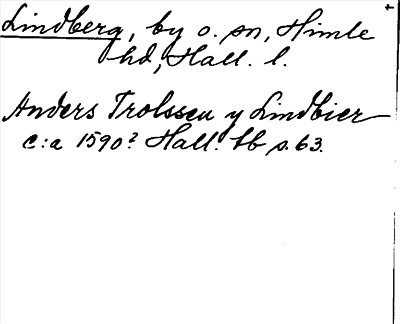 Lindberg, by o. sn, Himle
hd, Hall. l.
Anders Trolssen y Lindbier
c:a 1590? Hall. tb s. 63.